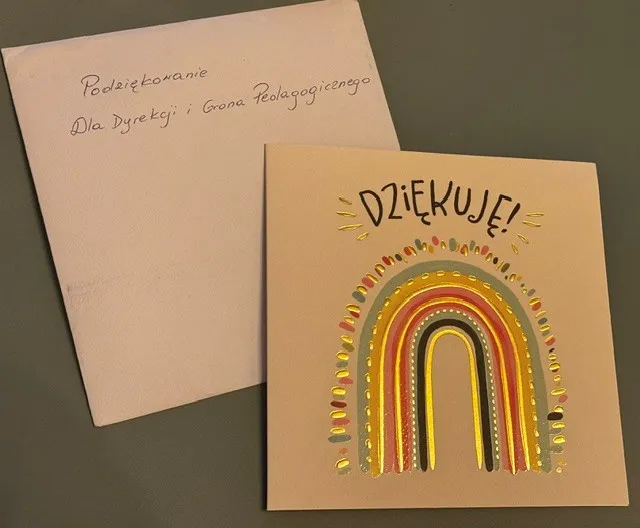 Podziękowanie
Dla Dyrekcji i Grona Pedagogicznego
DZIĘKUJĘ!